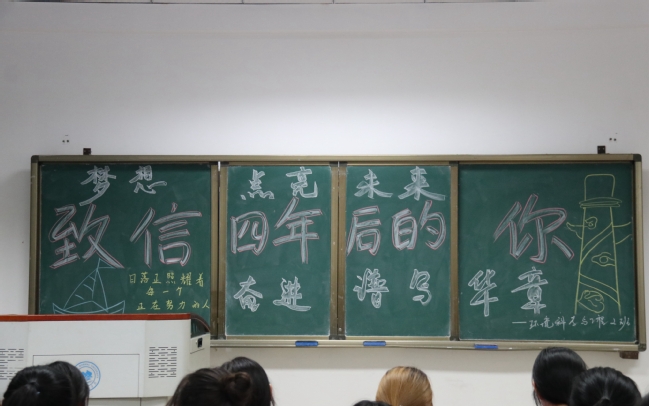 梦想 点亮 未来
致信四年后的你
奋进 谱写 华章
日落正照耀着
每一个
正在努力的人
——环境科学与工程2316